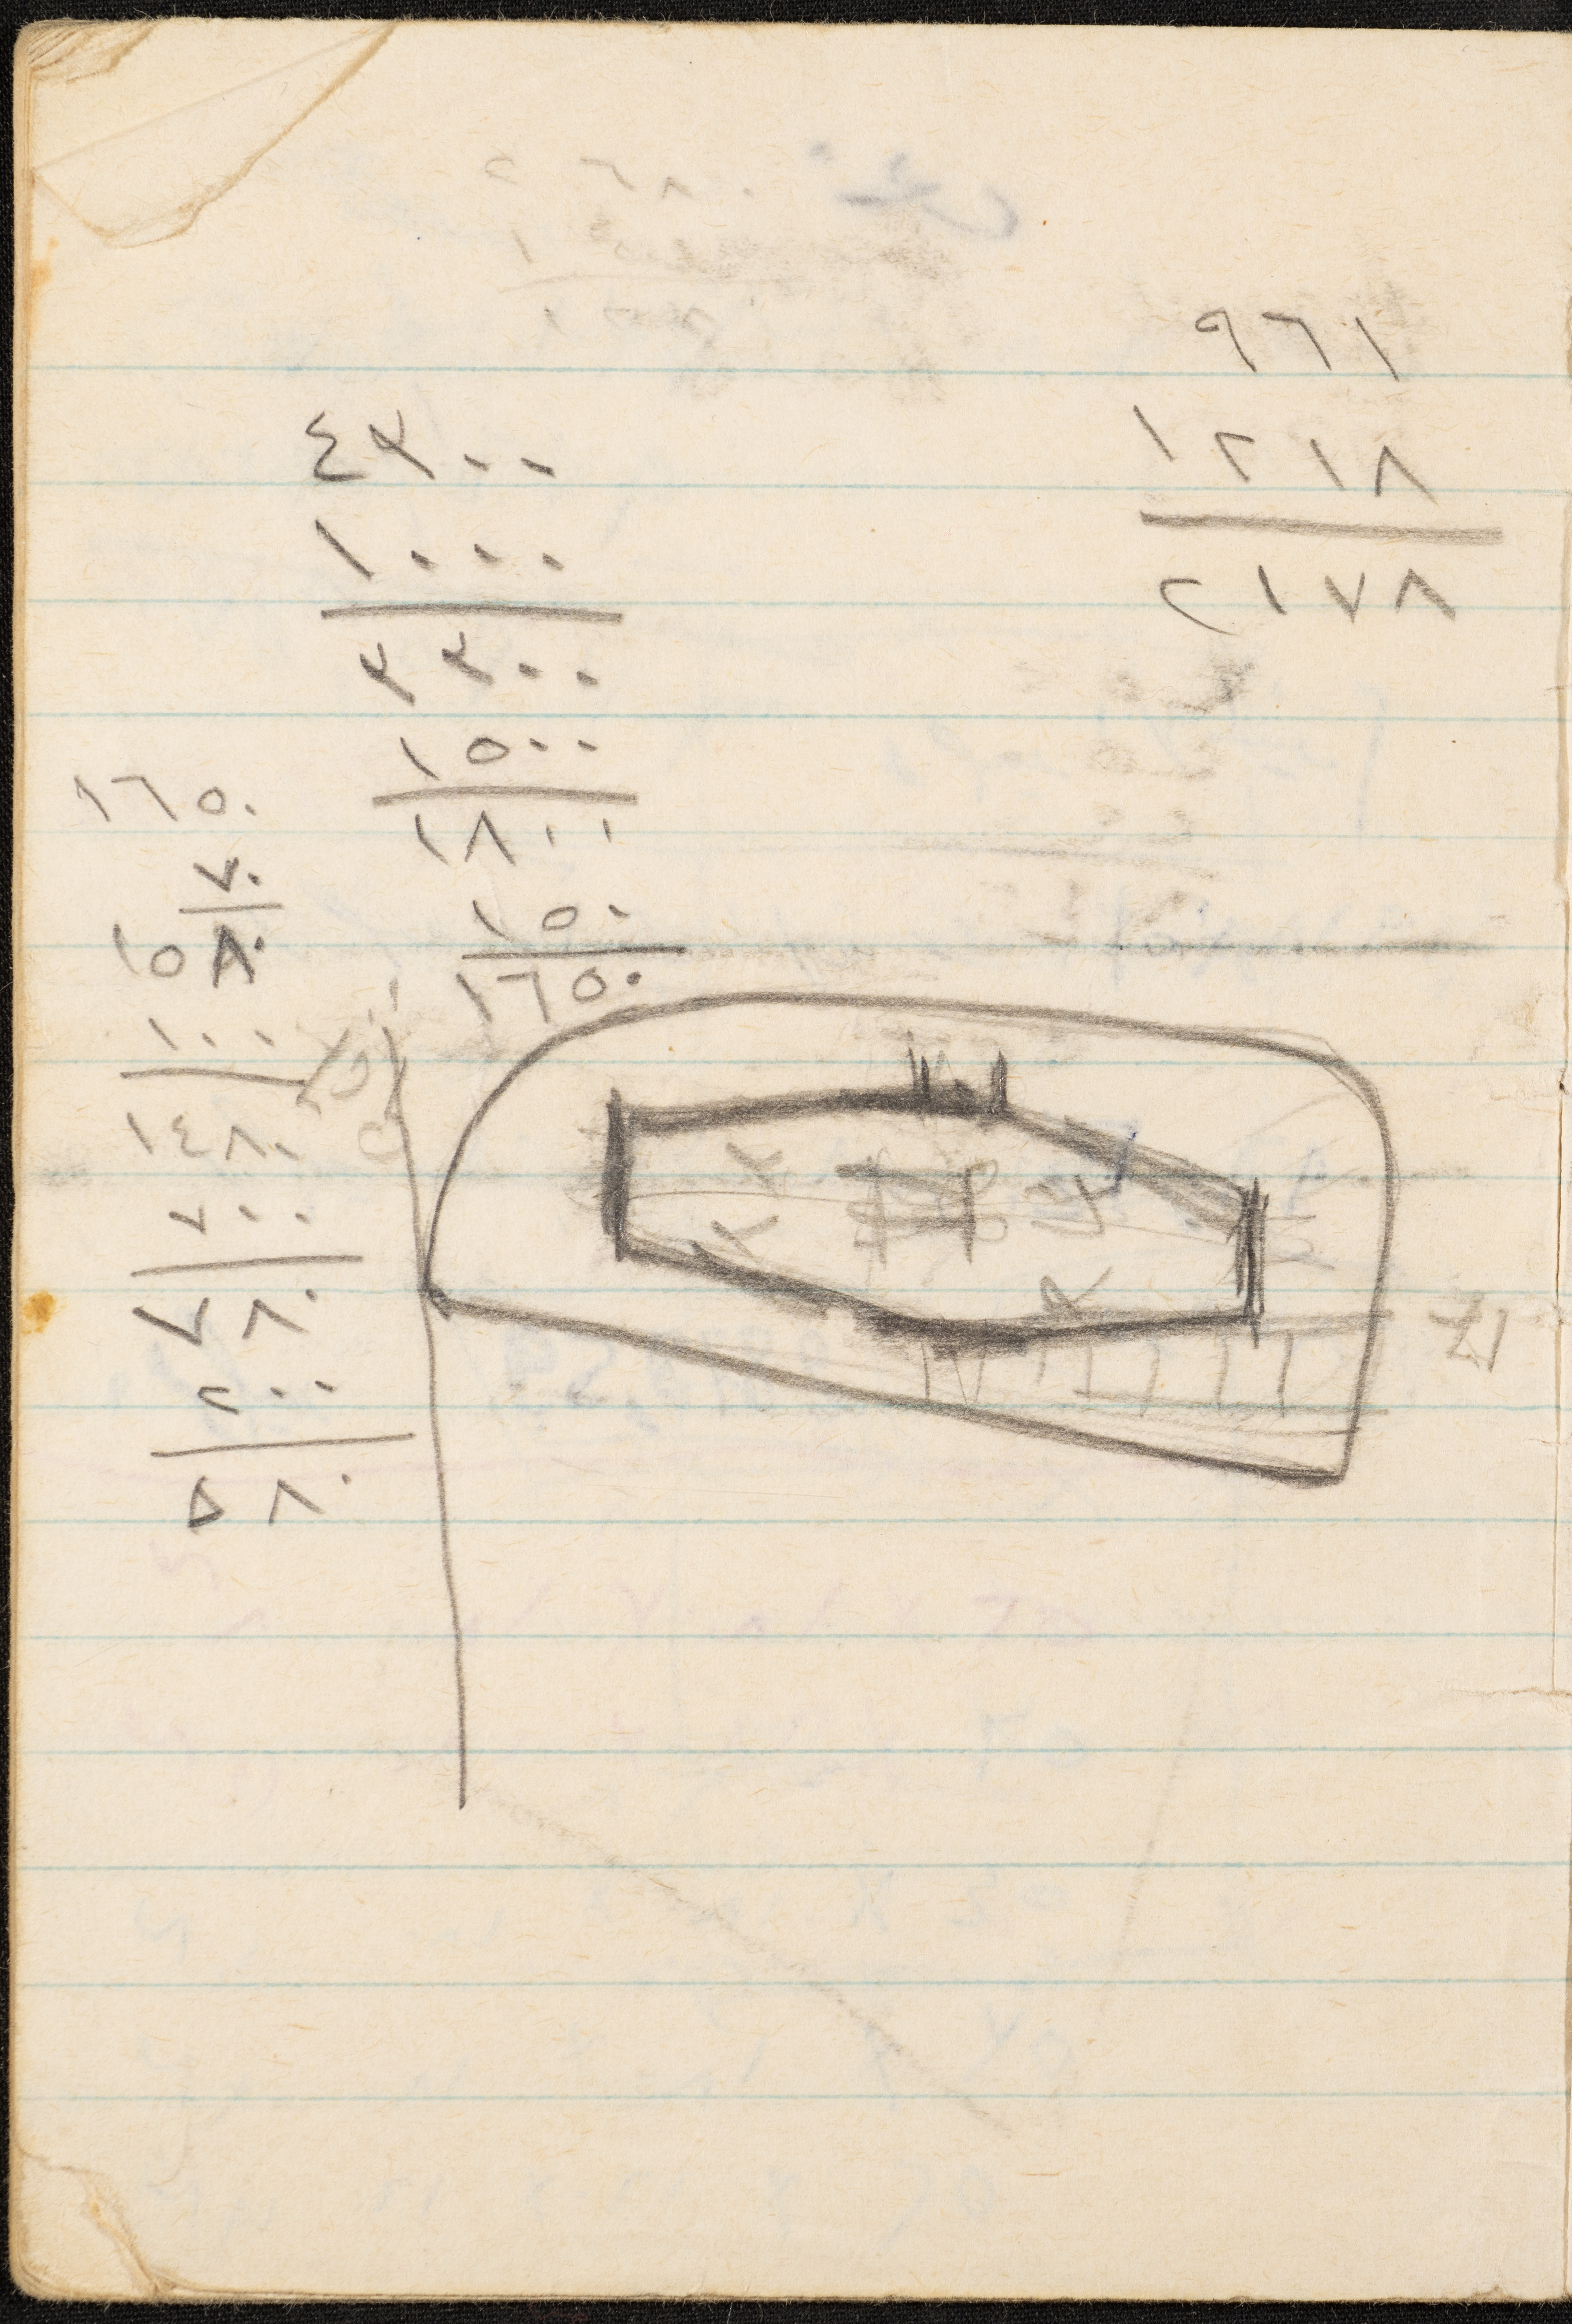 ٩٦١
١٢١٨
٢١٧٨
٤٣٠٠
١٠٠٠
٣٣٠٠
١٥٠٠
١٨٠٠
١٥٠
١٦٥٠
١٦٥٠
٧٠
١٥٨٠
١٠٠
١٤٨٠
٧٠٠
٧٨٠
٢٠٠
٥٨٠